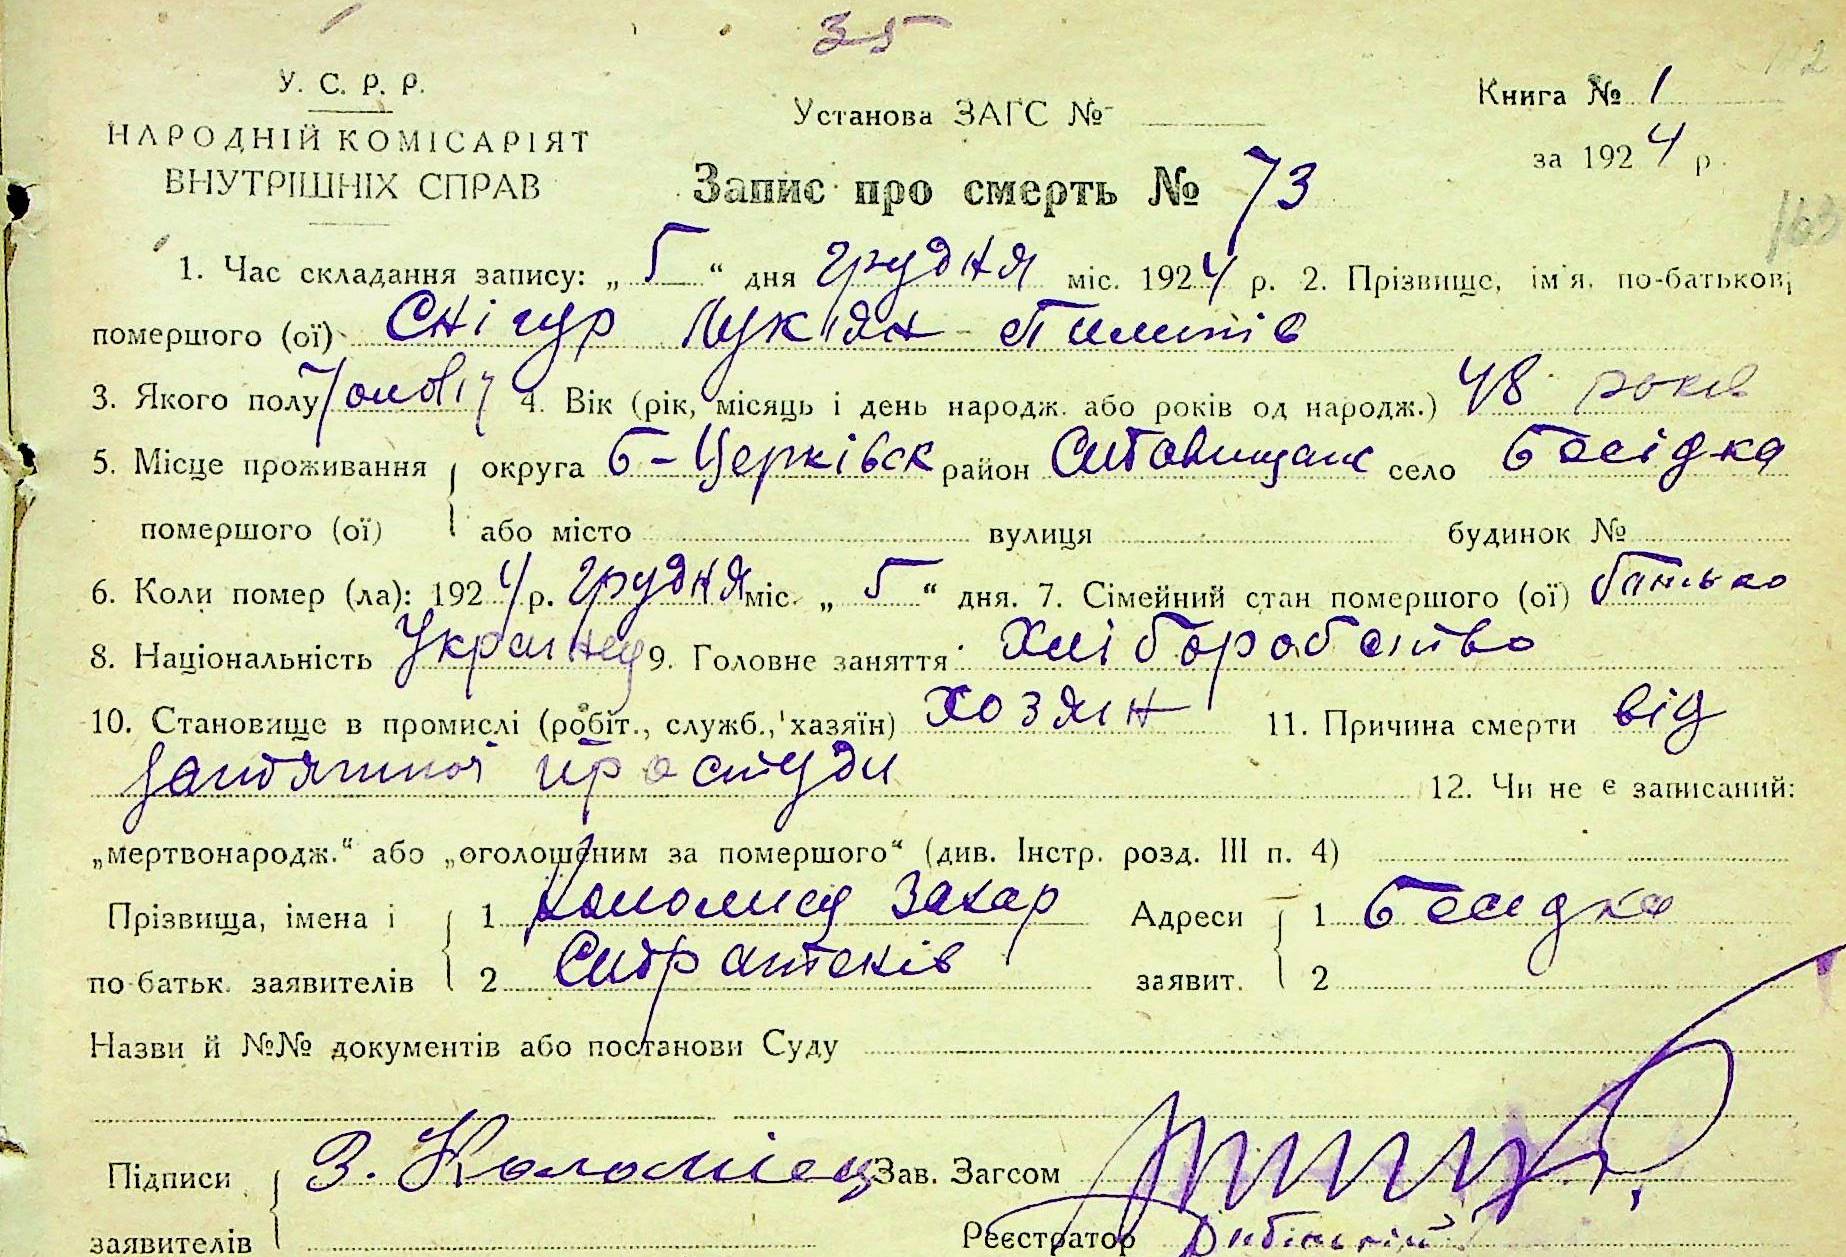 35
У. С. Р. Р.
НАРОДНІЙ КОМІСАРІЯТ
ВНУТРІШНІХ СПРАВ
Установа ЗАГС №
Книга № 1
за 1924 р.
Запис про смерть № 73
163
1. Час складання запису: „ 5 “ дня грудня міс. 1924 р. 2. Прізвище, ім'я, по-батькові
помершого (ої) Снігур Лукіян Пилипів
3. Якого полу чоловіч 4. Вік (рік, місяць і день народж. або років од народж.) 48 років
5. Місце проживання округа Б-Церківск район Ставищанс село Бесідка
помершого (ої) або місто вулиця будинок №
6. Коли помер (ла): 1924 р. грудня міс. „ 5 “ дня. 7. Сімейний стан помершого (ої) батько
8. Національність Українец 9. Головне заняття Хліборобство
10. Становище в промислі (робіт., служб., хазяїн) хозяин 11. Причина смерти від
простуди 12. Чи не є записаний:
„мертвонародж.“ або „оголошеним за помершого“ (див. Інстр. розд. III п. 4)
Прізвища, імена і 1 Коломиец Захар Адреси 1 Бесидка
по-батьк. заявителів 2 заявит. 2
Назви й №№ документів або постанови Суду
Підписи З. Коломіец Зав. Загсом
заявителів Реєстратор